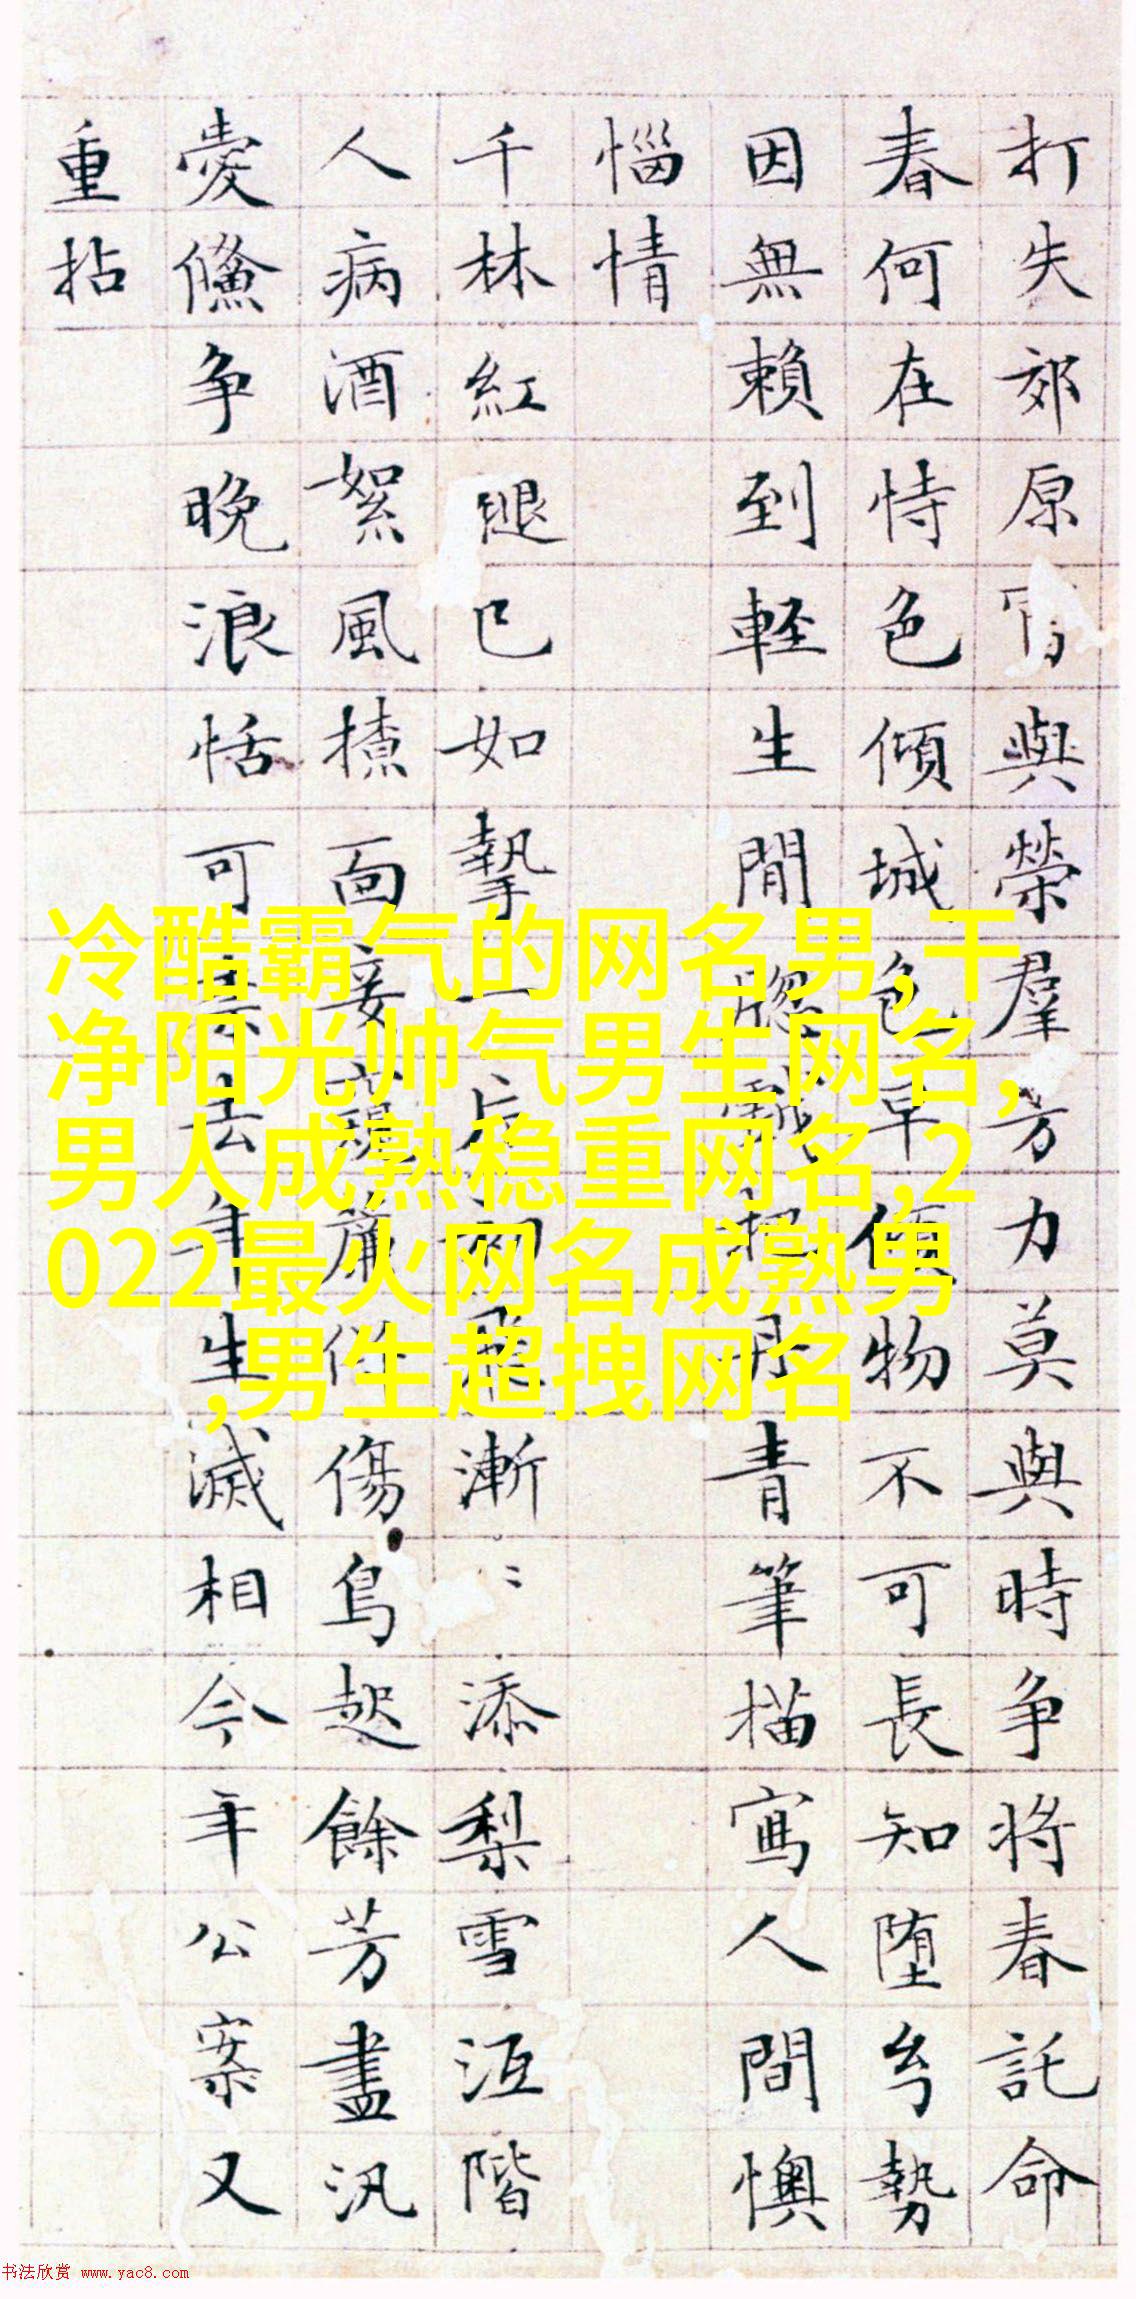 打失郊原與榮羣芳力莫與時争将春託命
春何在恃色傾城色早傾物不可長知堕勢
因無賴到軽生閒戲把丹青筆描寫人間懊
惱情
千林紅褪已如一片初飛漸〻添梨雪沍階
人病酒絮風面妾窺簾傷鳥起餘芳盡汎
愛争晚浪恬可去年生滅相今年公案又
重拈
冷酷霸气的网名男,干
净阳光帅气男生网名,
男人成熟稳重网名,2
022最火网名成熟男
,男生超拽网名
书法欣赏 www.yac8.com